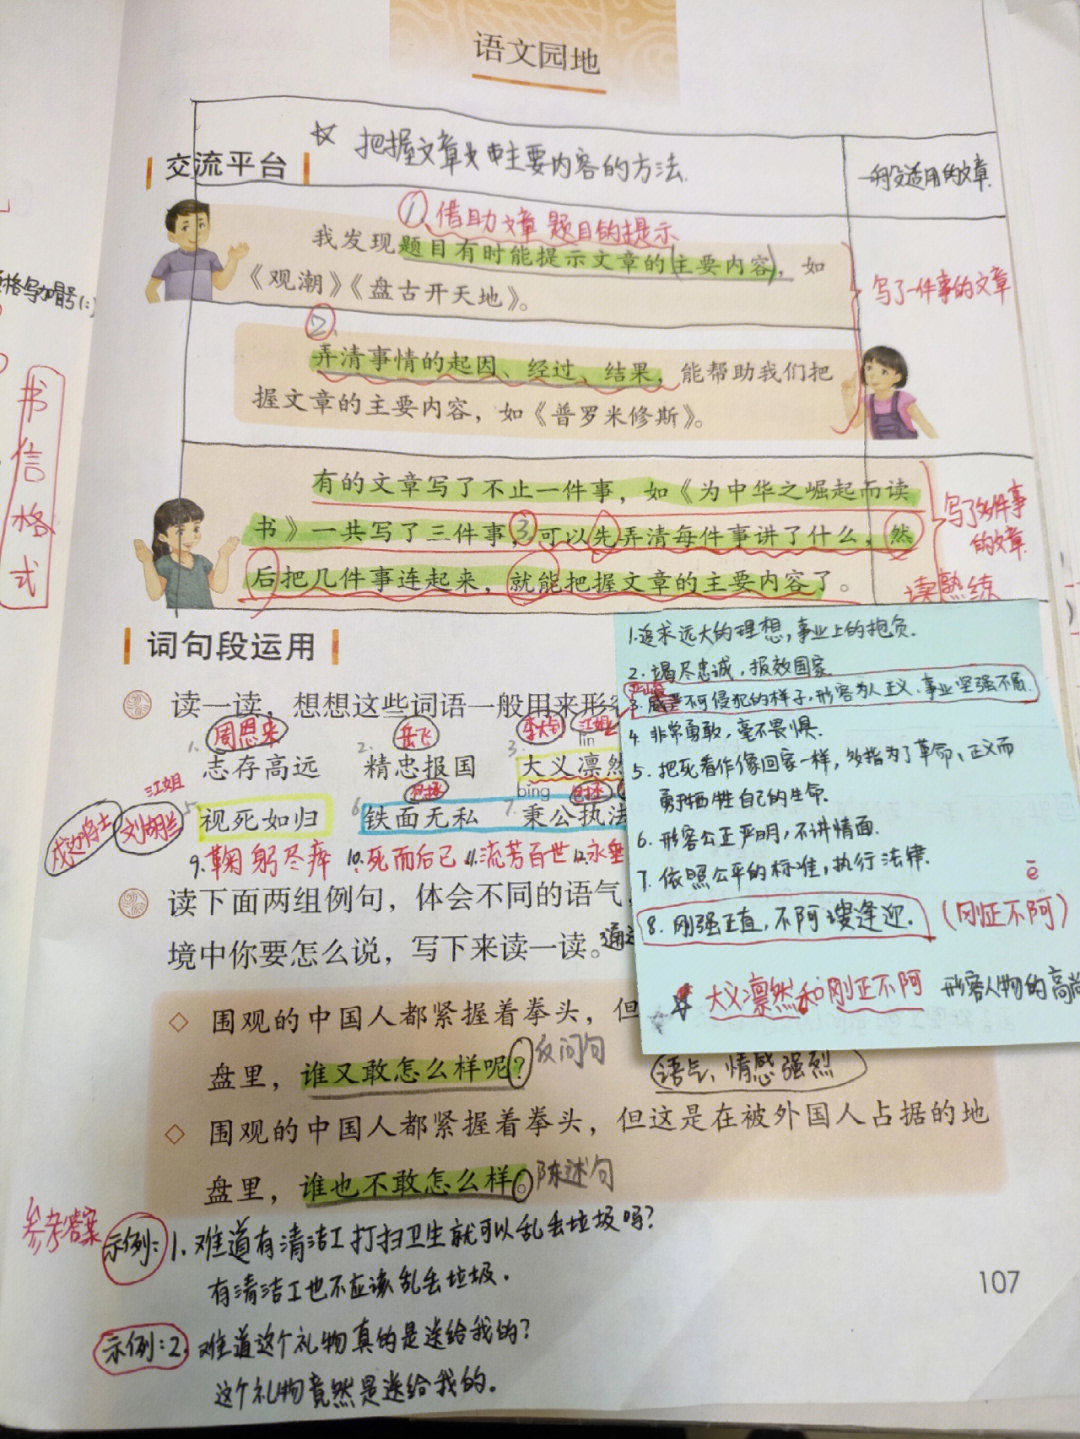 语文园地
☆ 把握文章主要内容的方法
一般适用的文章
交流平台
①借助文章题目的提示
我发现题目有时能提示文章的(主要内容)，如
《观潮》《盘古开天地》。
写了一件事的文章
②
弄清事情的起因、经过、结果，能帮助我们把
握文章的主要内容，如《普罗米修斯》。
书信格式
有的文章写了不止一件事，如《为中华之崛起而读
书》一共写了三件事，③可以先弄清每件事讲了什么，然
后把几件事连起来，就能把握文章的主要内容了。
写了多件事
的文章
读熟练
词句段运用
读一读，想想这些词语一般用来形
1. 周恩来
2. 岳飞
3. 李大钊 江姐
lin
志存高远 精忠报国 大义凛然
江姐
戍边将士 刘胡兰
bing
5 视死如归 6 铁面无私 7. 秉公执法
9.鞠躬尽瘁 10.死而后已 11.流芳百世 12.永垂
1.追求远大的理想，事业上的抱负.
2.竭尽忠诚，报效国家
3.威严不可侵犯的样子，形容为人正义、事业坚强不屈.
4.非常勇敢，毫不畏惧.
5.把死看作像回家一样，多指为了革命、正义而
勇于牺牲自己的生命.
6.形容公正严明，不讲情面.
7.依照公平的标准，执行法律.
ē
8.刚强正直，不阿谀逢迎.(刚正不阿)
大义凛然和刚正不阿 形容人物的高尚
读下面两组例句，体会不同的语气
境中你要怎么说，写下来读一读。
◇ 围观的中国人都紧握着拳头，但
盘里，谁又敢怎么样呢？反问句
语气、情感强烈
◇ 围观的中国人都紧握着拳头，但这是在被外国人占据的地
盘里，谁也不敢怎么样。陈述句
参考答案
示例：1.难道有清洁工打扫卫生就可以乱丢垃圾吗？
有清洁工也不应该乱丢垃圾.
107
示例：2.难道这个礼物真的是送给我的？
这个礼物竟然是送给我的。